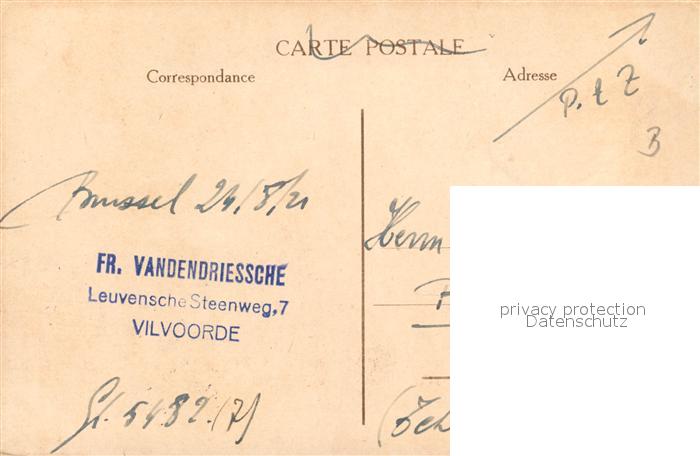 CARTE POSTALE
Correspondance
Adresse
P. t Z
B
Brussel 24/8/21
Herrn
FR. VANDENDRIESSCHE
Leuvensche Steenweg, 7
VILVOORDE
privacy protection
Datenschutz
5482 (7)